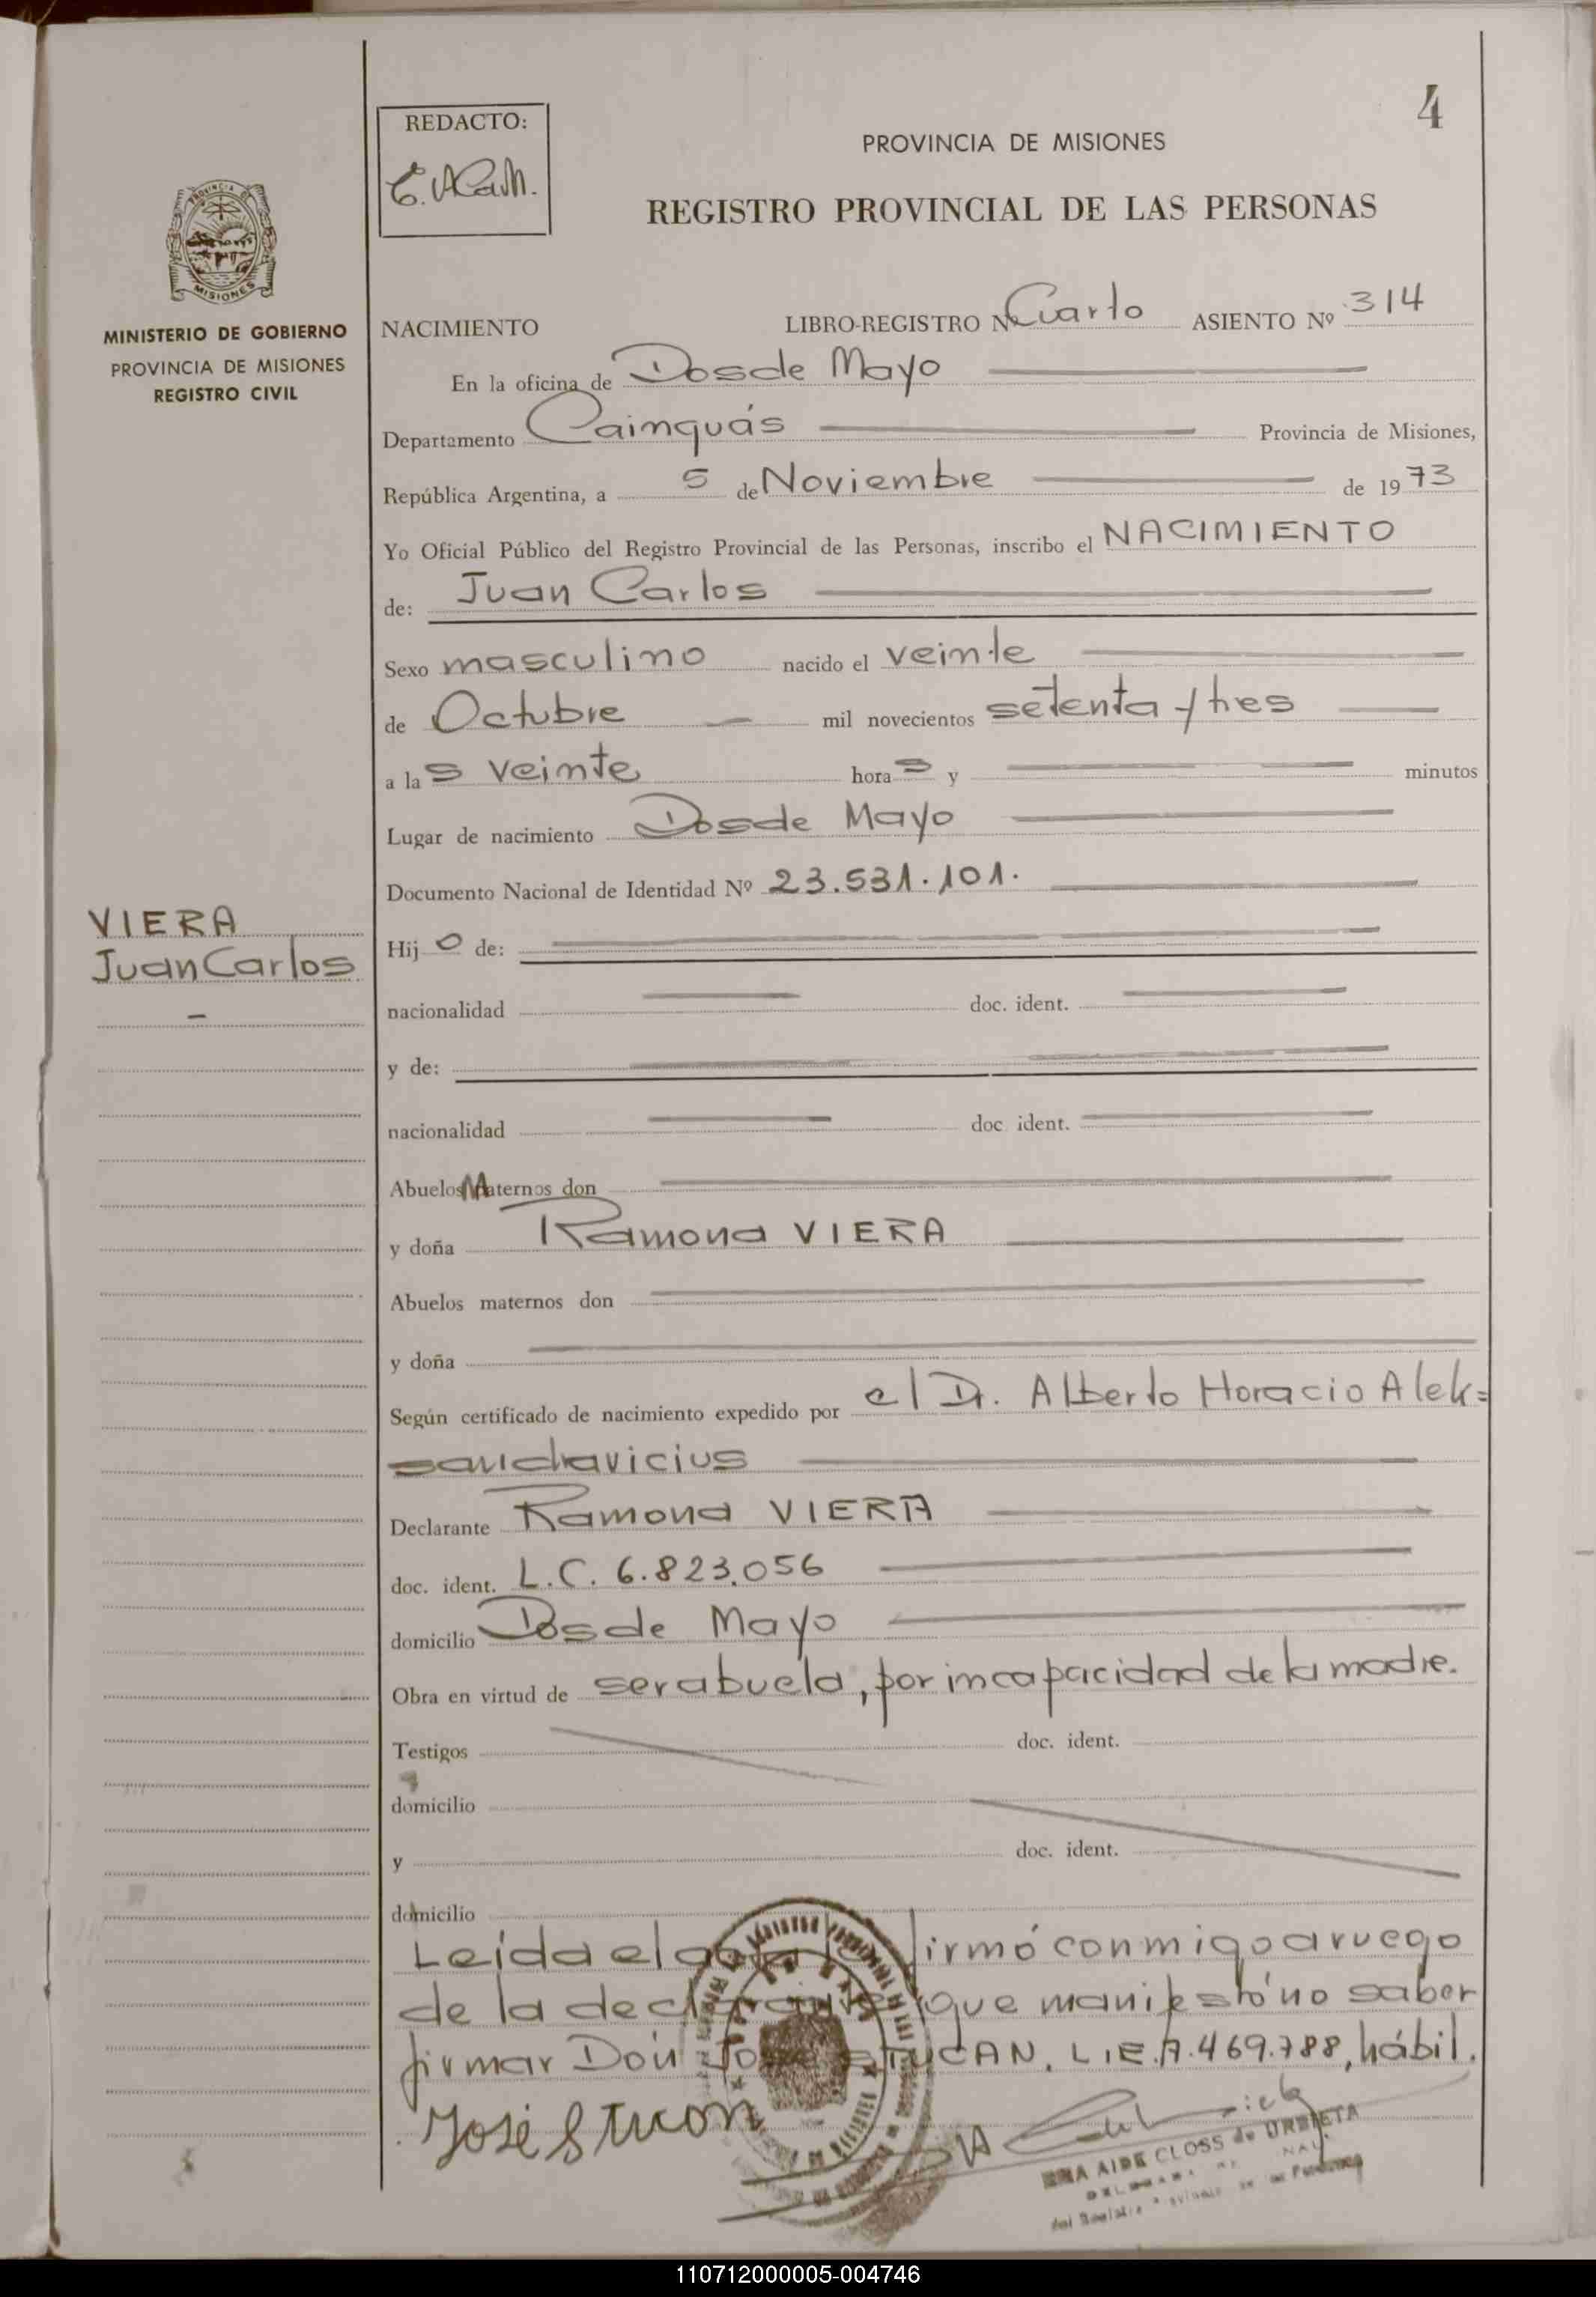 4
REDACTO:
PROVINCIA DE MISIONES
REGISTRO PROVINCIAL DE LAS PERSONAS
PROVINCIA DE
MISIONES
MINISTERIO DE GOBIERNO
PROVINCIA DE MISIONES
REGISTRO CIVIL
NACIMIENTO LIBRO-REGISTRO Nº Cuarto ASIENTO Nº 314
En la oficina de Dos de Mayo
Departamento Cainguás Provincia de Misiones,
República Argentina, a 5 de Noviembre de 1973
Yo Oficial Público del Registro Provincial de las Personas, inscribo el NACIMIENTO
de: Juan Carlos
Sexo masculino nacido el veinte
de Octubre mil novecientos setenta y tres
a las veinte horas y minutos
Lugar de nacimiento Dos de Mayo
Documento Nacional de Identidad Nº 23.531.101.
VIERA
Juan Carlos
Hijo de:
nacionalidad doc. ident.
y de:
nacionalidad doc ident.
Abuelos Maternos don
y doña Ramona VIERA
Abuelos maternos don
y doña
Según certificado de nacimiento expedido por el Dr. Alberto Horacio Alek=
sandravicius
Declarante Ramona VIERA
doc. ident. L.C. 6.823.056
domicilio Dos de Mayo
Obra en virtud de ser abuela, por incapacidad de la madre.
Testigos doc. ident.
domicilio
y doc. ident.
domicilio
Leída el acta la firmó conmigo a ruego
de la declarante que manifestó no saber
firmar Don José STUCAN, L.E. 7.469.788, hábil.
José Stucan
AIDE CLOSS de URBIETA
110712000005-004746